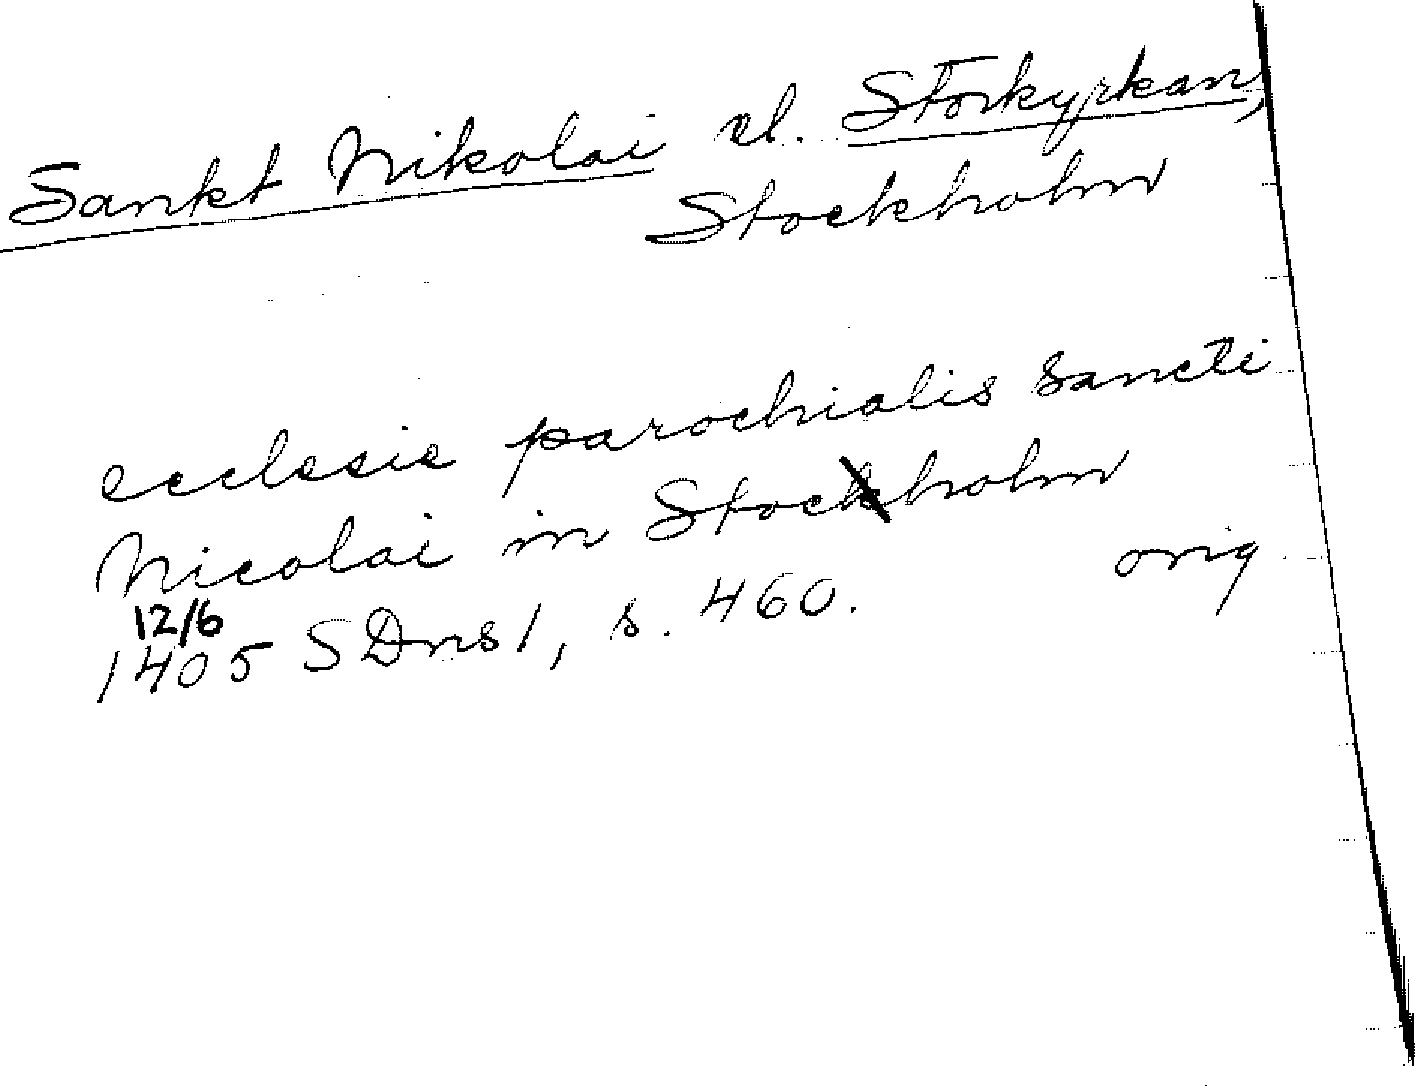 Sankt Nikolai el. Storkyrkan,
Stockholm
ecclesie parochialis sancti
Nicolai in Stocholm
orig
12/6
1405 SDns 1, s. 460.